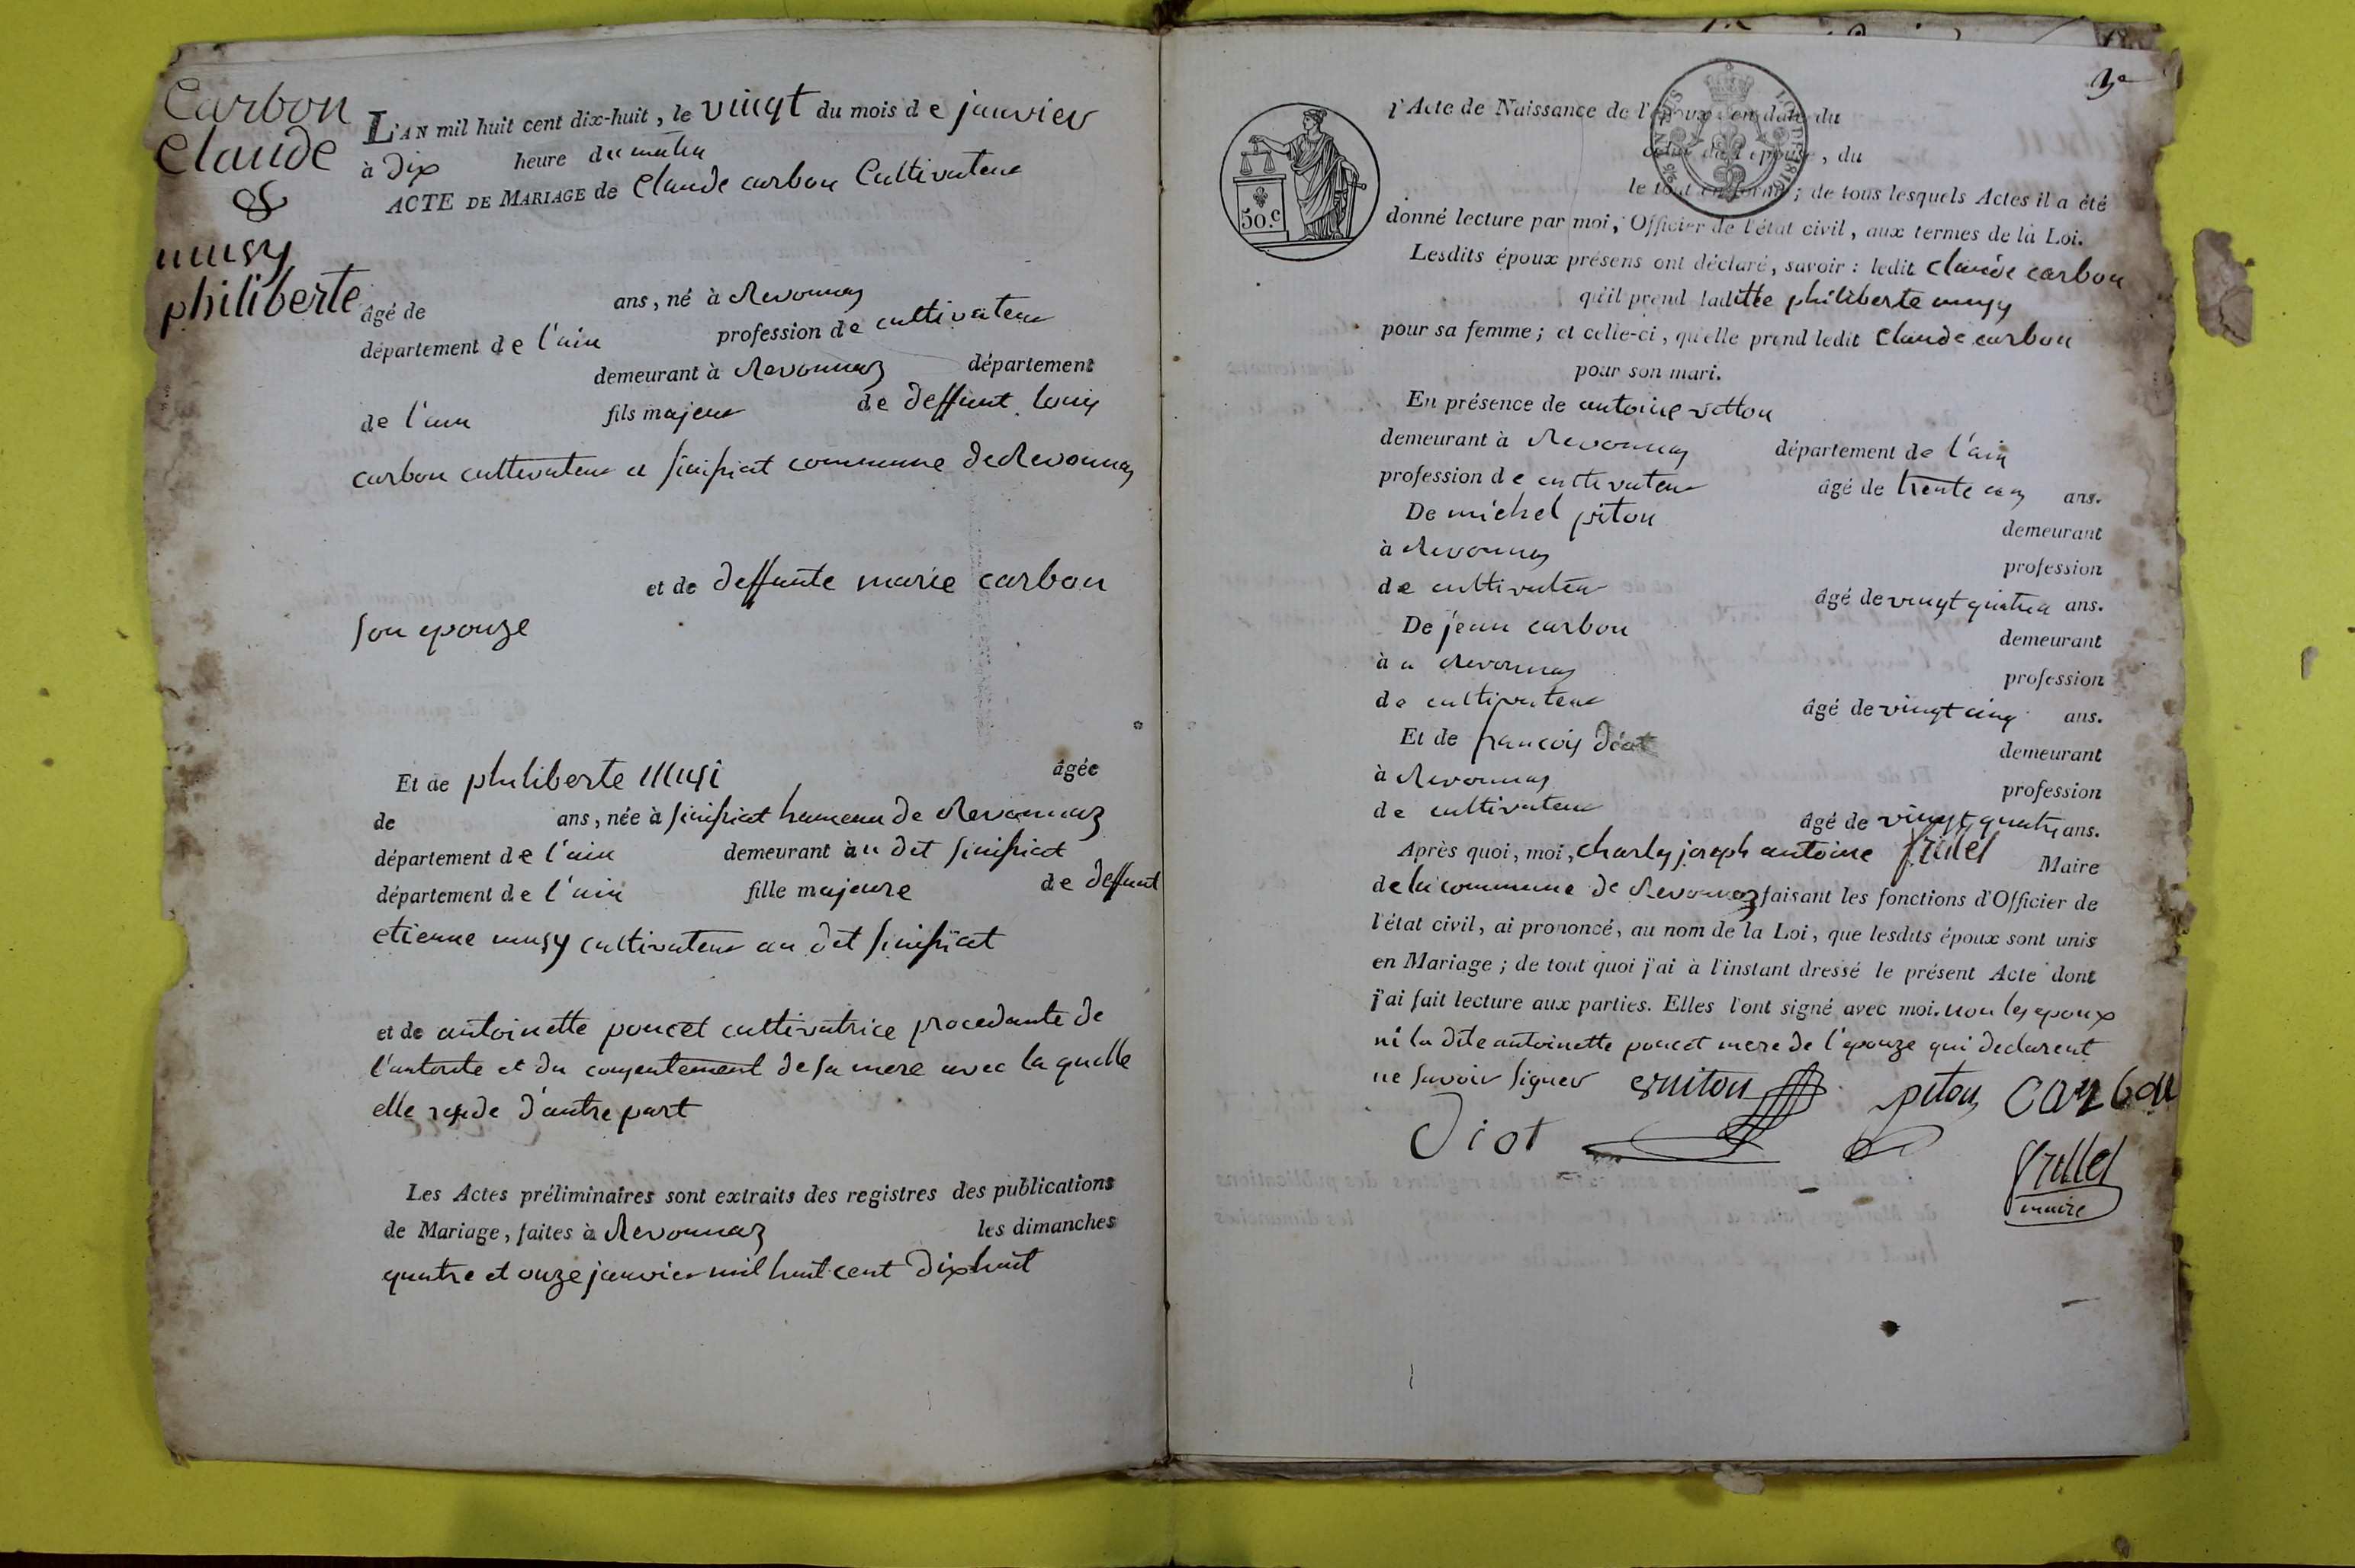 Carbon
Claude
&
musy
philiberte
L'AN mil huit cent dix-huit, le vingt du mois de janvier
à dix heure du matin
ACTE DE MARIAGE de Claude carbon Cultivateur
âgé de ans, né à Revonnaz
département de l'ain profession de cultivateur
demeurant à Revonnaz département
de l'ain fils majeur de deffunt louis
carbon cultivateur a simsiat commune de Revonnaz
et de deffunte marie carbon
son epouze
Et de philiberte Musi âgée
de ans, née à hameau de Revonnaz
département de l'ain demeurant au dit
département de l'ain fille majeure de deffunt
etienne musy cultivateur au dit
et de antoinette poncet cultivatrice procedante de
l'autorite et du consentement de sa mere avec la quelle
elle reside d'autre part
Les Actes préliminaires sont extraits des registres des publications
de Mariage, faites à Revonnaz les dimanches
quatre et onze janvier mil huit cent dix huit
50.c
l'Acte de Naissance de l'époux en date du
celui de l'épouse, du
le tout en forme; de tous lesquels Actes il a été
donné lecture par moi, Officier de l'état civil, aux termes de la Loi.
Lesdits époux présens ont déclaré, savoir : ledit claude carbon
qu'il prend laditte philiberte musy
pour sa femme; et celle-ci, qu'elle prend ledit Claude carbon
pour son mari.
En présence de antoine
demeurant à Revonnas département de l'ain
profession de cultivateur âgé de trente ans.
De michel piton demeurant
à Revonnas profession
de cultivateur âgé de vingt quatre ans.
De jean carbon demeurant
à a Revonnas profession
de cultivateur âgé de vingt cinq ans.
Et de francois diot demeurant
à Revonnas profession
de cultivateur âgé de vingt quatre ans.
Après quoi, moi, charles joseph antoine frillet Maire
de la commune de Revonnaz faisant les fonctions d'Officier de
l'état civil, ai prononcé, au nom de la Loi, que lesdits époux sont unis
en Mariage; de tout quoi j'ai à l'instant dressé le présent Acte dont
j'ai fait lecture aux parties. Elles l'ont signé avec moi. non les epoux
ni la dite antoinette poncet mere de l'epouze qui declarent
ne savoir signer piton carbon
Diot
frillet
maire